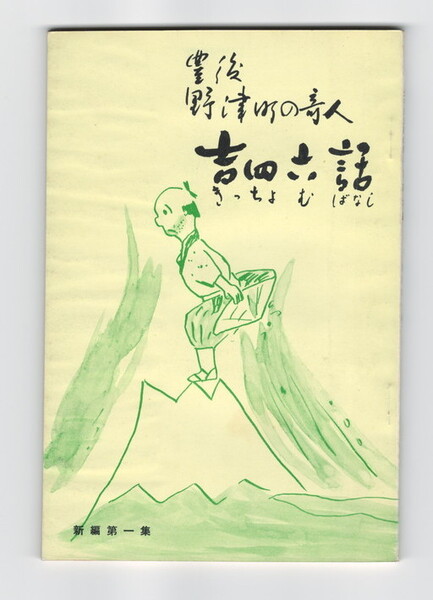 豊後
野津町の奇人
吉四六話
きっちょむばなし
新編第一集